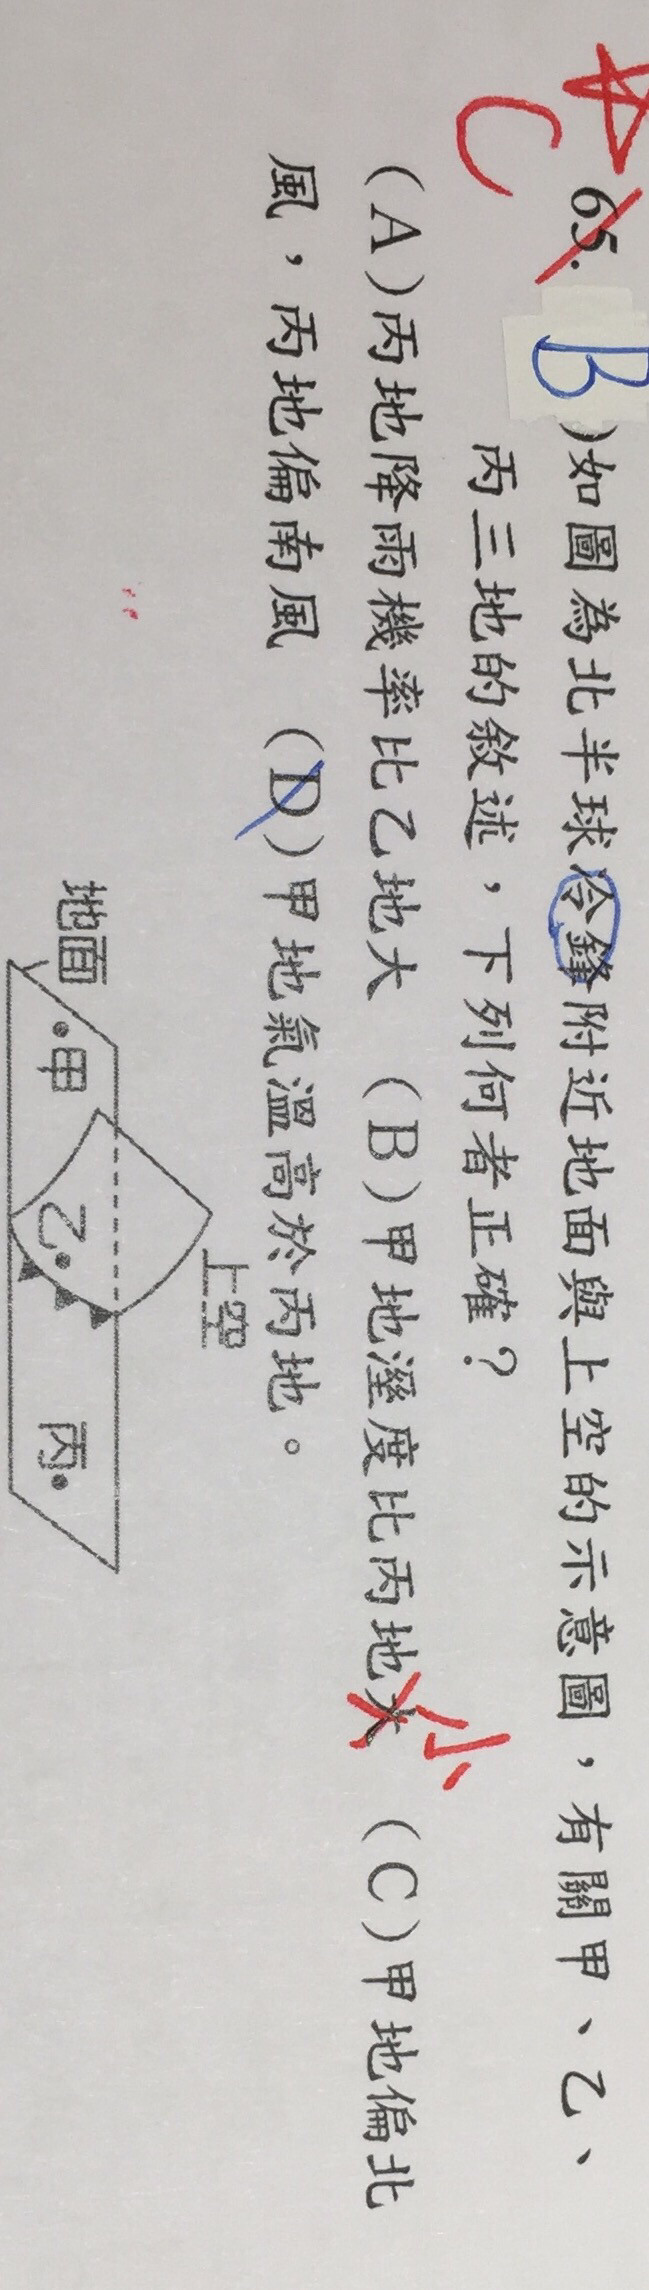 C
65. B )如圖為北半球冷鋒附近地面與上空的示意圖，有關甲、乙、
丙三地的敘述，下列何者正確？
(A)丙地降雨機率比乙地大 (B)甲地溼度比丙地大 小 (C)甲地偏北
風，丙地偏南風 (D)甲地氣溫高於丙地。
上空
地面
甲
乙
丙